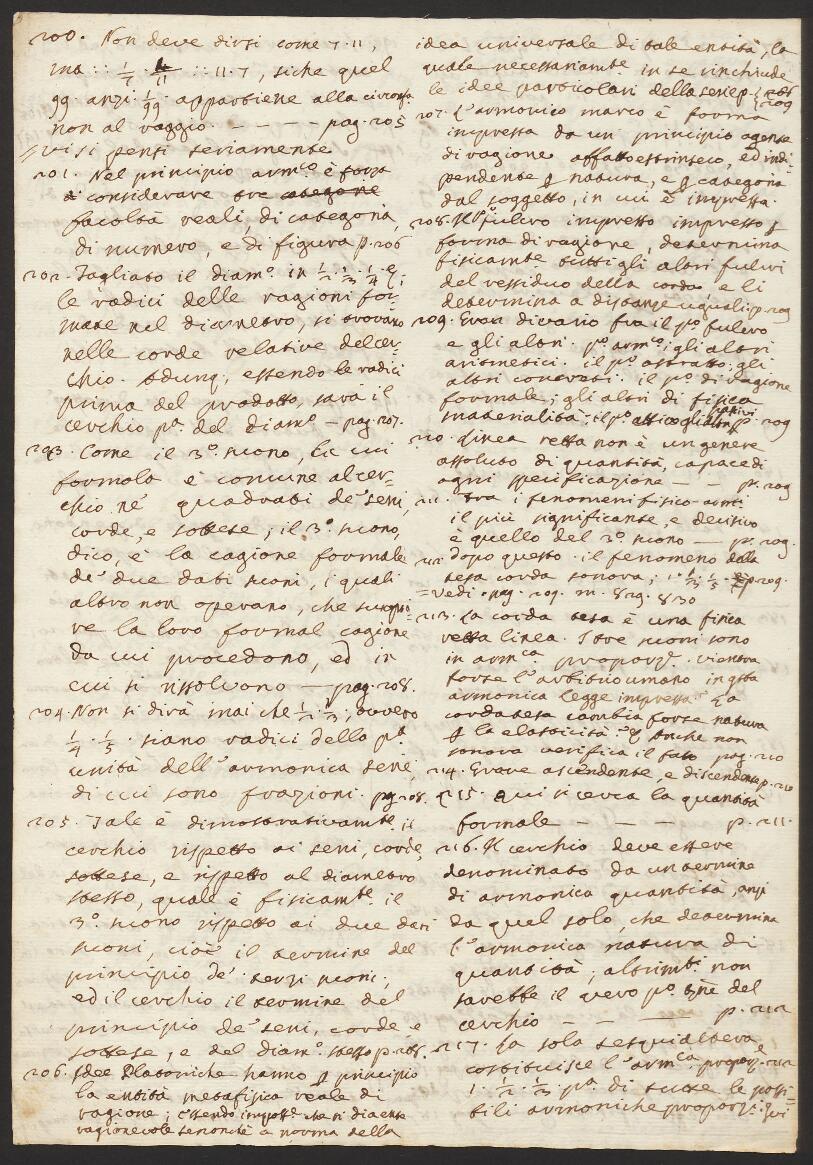 200. Non deve dirsi come 7. 11,
ma :: 1/7 · 4/11 :: 11. 7, siche quel
99. anzi 1/99 appartiene alla circonfa.
non al raggio - - - - pag. 205
vi si pensi seriamente
201. Nel principio armco. è forza
di considerare tre categorie
facoltà reali, di categoria,
di numero, e di figura p. 206
202. Tagliato il diamo. in 1/2 · 1/3 · 1/4
le radici delle ragioni for-
mate nel diametro, si trovano
nelle corde relative del cer-
chio. Adunq, essendo le radici
prima del prodotto, sarà il
cerchio pa. del diamo - pag. 207.
203. Come il 3.o suono, la cui
formola è comune al cer-
chio ne' quadrati de' seni,
corde, e sottese; il 3.o suono,
dico, è la cagione formale
de' due dati suoni, i quali
altro non operano, che
re la loro formal cagione
da cui procedono, ed in
cui si rissolvono - pag. 208.
204. Non si dirà mai che 1/2 · 1/3; ovvero
1/4 · 1/5 siano radici della pa.
unità dell'armonica serie,
di cui sono frazioni. pag. 208.
205. Tale è dimostrativamte. il
cerchio rispetto ai seni, corde,
sottese, e rispetto al diametro
stesso, quale è fisicamte. il
3.o suono rispetto ai due dati
suoni, cioè il termine del
principio de' terzi suoni;
ed il cerchio il termine del
principio de' seni, corde e
sottese, e del diamo. stesso p. 208.
206. Idee Platoniche hanno p principio
la entità metafisica reale di
ragione; essendo imposse. che si dia ente
ragionevole senonchè a norma della
idea universale di tale entità, la
quale necessariamte. in se rinchiude
le idee particolari della serie p. 208 209
207. L'armonico marco è forma
impressa da un principio agente
di ragione affatto estrinseco, ed indi-
pendente p natura, e p categoria
dal soggetto, in cui è impressa.
208. Il po. fulcro impresso impresso p
forma di ragione, determina
fisicamte tutti gli altri fulcri
del ressiduo della corda e li
determina a distanze uguali p. 209
209. Gran divario fra il po. fulcro
e gli altri. po. armco; gli altri
aritmetici. il po. astratto; gli
altri concreti. il po. di ragione
formale; gli altri di fisica
materialità; il po. attivo gli altri passivi p. 209
210. Linea retta non è un genere
assoluto di quantità, capace di
ogni specificazione - - p. 209
211. Tra i fenomeni fisico-armci
il più significante, e decisivo
è quello del 3.o suono - p. 209.
212. dopo questo il fenomeno della
tesa corda sonora; 1 · 1/3 · 1/5 p. 209.
=vedi. pag. 209. m. 829. 830
213. La corda tesa è una fisica
retta linea. I tre suoni sono
in armca. proporze. vi entra
forse l'arbitrio umano in qta
armonica legge impressa? La
corda tesa cambia forse natura
p la elasticità? anche non
sonora verifica il fato pag. 210
214. Grave ascendente, e discendente p. 210
215. Qui si cerca la quantità
formale - - - - p. 211.
216. Il cerchio deve essere
denominato da un termine
di armonica quantità, anzi
da quel solo, che determina
l'armonica natura di
quantità; altrimti non
sarebbe il vero po. del
cerchio - - - p. 212
217. La sola sesquialtera
costituisce l'armca. proporze. 212
1 · 1/2 · 1/3 pa. di tutte le possi-
bili armoniche proporze. Ivi